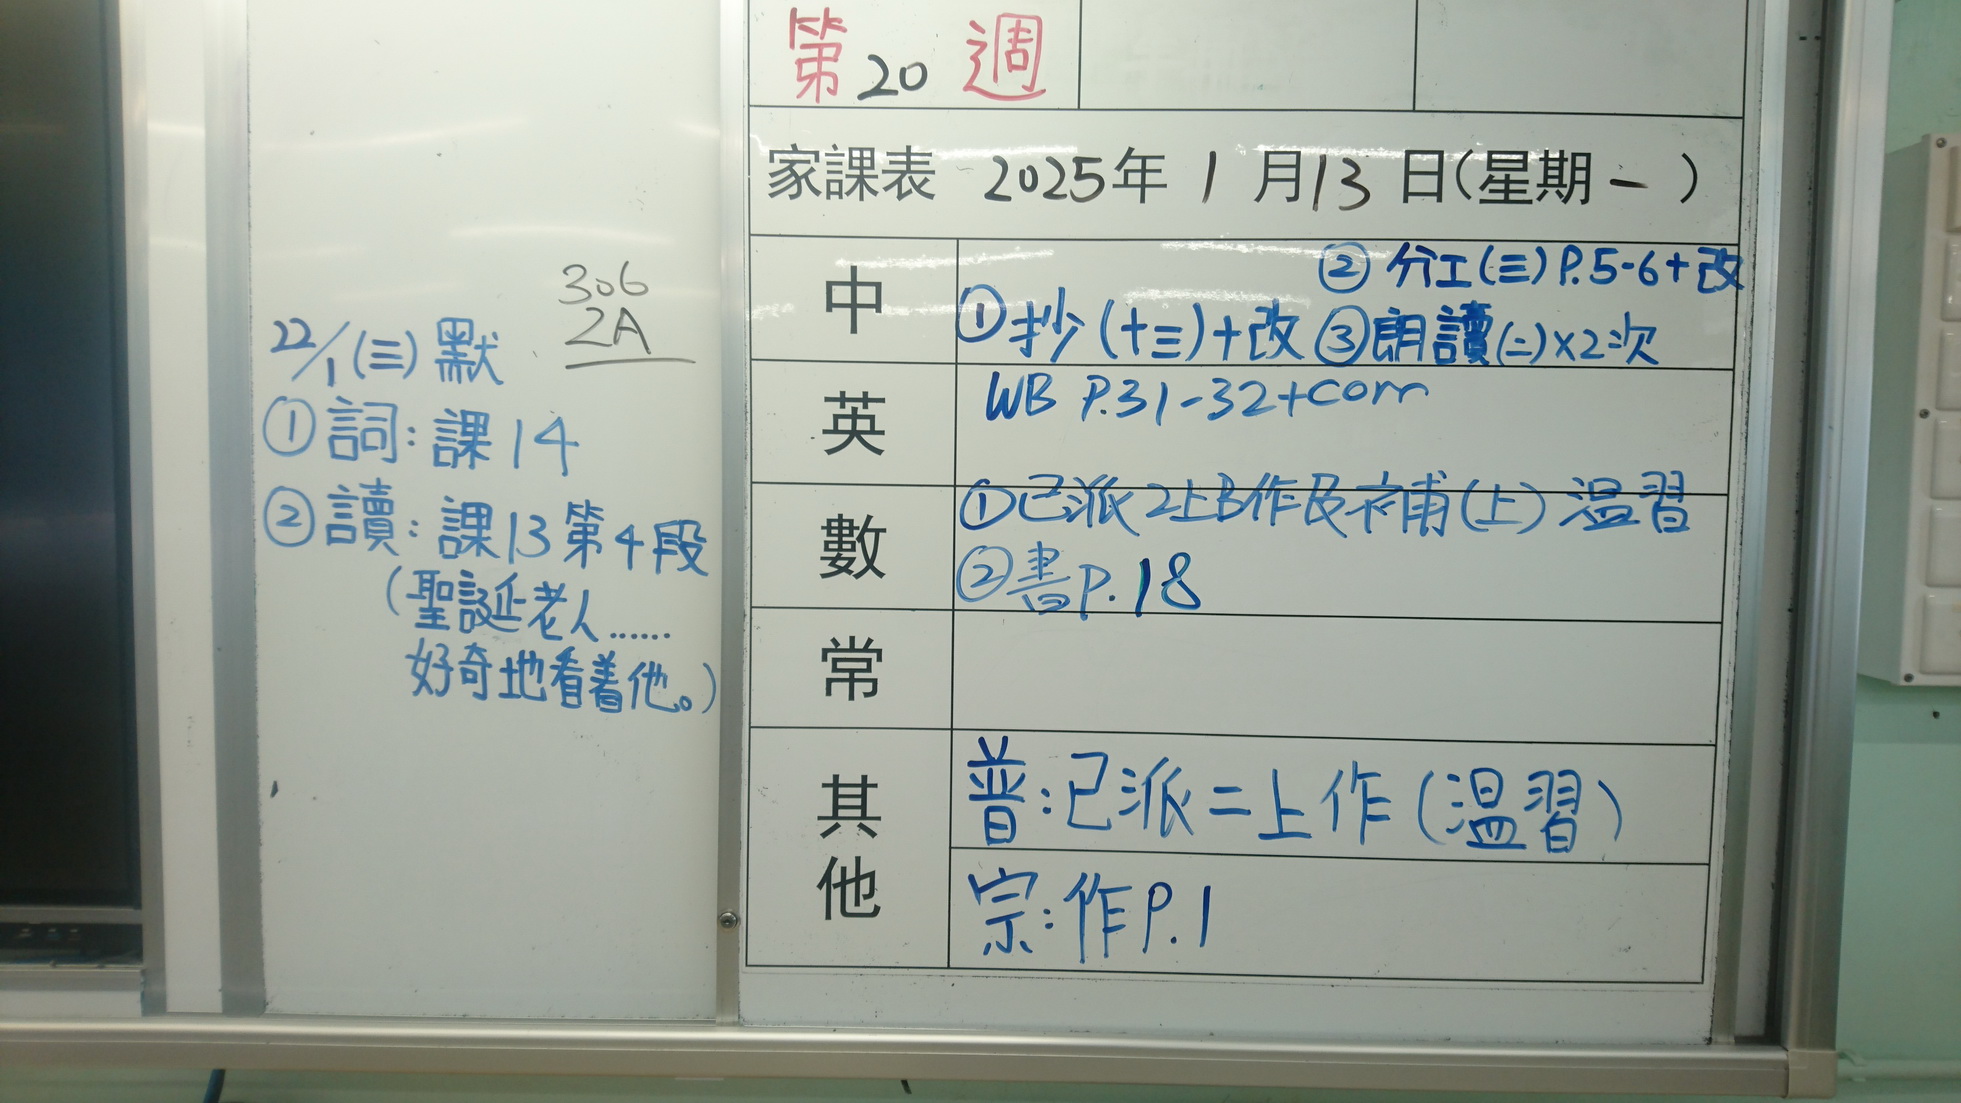 306
2A
22/1(三)默
①詞:課14
②讀:課13第4段
(聖誕老人......
好奇地看着他。)
第20週
家課表 2025年1月13日(星期一)
中
②分工(三)P.5-6+改
①抄(十三)+改 ③朗讀(二)×2次
英
WB P.31-32+corr
數
①已派2上B作及補(上)温習
②書P.18
常
其他
普:已派二上作(温習)
宗:作P.1